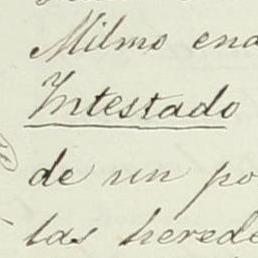 Milmo ena
Intestado
de un po
las herede